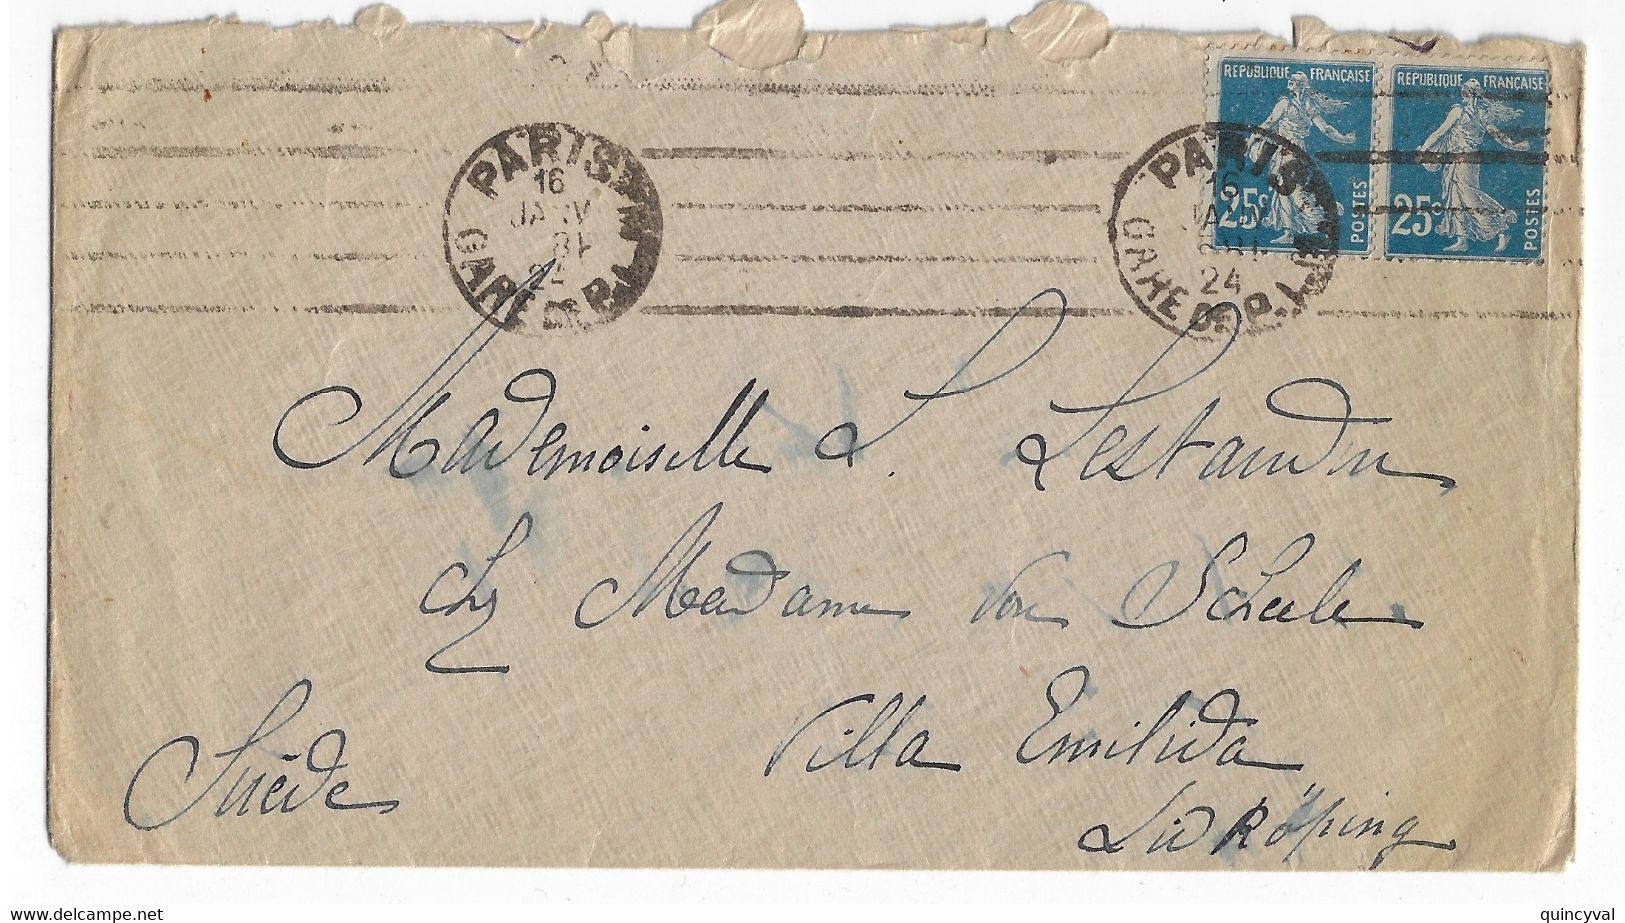 REPUBLIQUE FRANÇAISE
25c POSTES
REPUBLIQUE FRANÇAISE
25c POSTES
PARIS
16
JANV
24
GARE DE
PARIS
16
24
GARE DE
Mademoiselle L.
chez Madame von Scheele
Villa Emilida
Suède
www.delcampe.net
quincyval